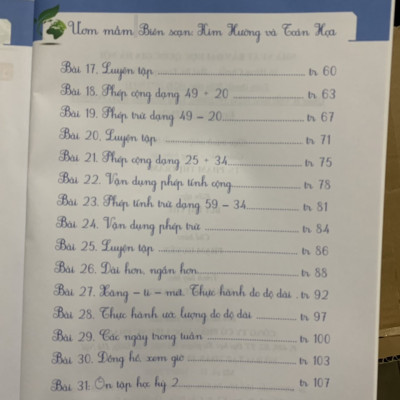 Ươm mầm Biên soạn: Kim Hường và Toán Họa
Bài 17. Luyện tập tr 60
Bài 18. Phép cộng dạng 49 + 20 tr 63
Bài 19. Phép trừ dạng 49 - 20 tr 67
Bài 20. Luyện tập tr 71
Bài 21. Phép cộng dạng 25 + 34 tr 75
Bài 22. Vận dụng phép tính cộng tr 78
Bài 23. Phép tính trừ dạng 59 - 34 tr 81
Bài 24. Vận dụng phép trừ tr 84
Bài 25. Luyện tập tr 86
Bài 26. Dài hơn, ngắn hơn tr 88
Bài 27. Xăng - ti - mét. Thực hành đo độ dài . tr 92
Bài 28. Thực hành ước lượng đo độ dài tr 97
Bài 29. Các ngày trong tuần tr 100
Bài 30. Đồng hồ, xem giờ tr 103
Bài 31: Ôn tập học kỳ 2 tr 107